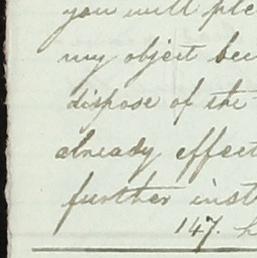 you will ple
my object bec
dispose of the
already effect
further inst
147.